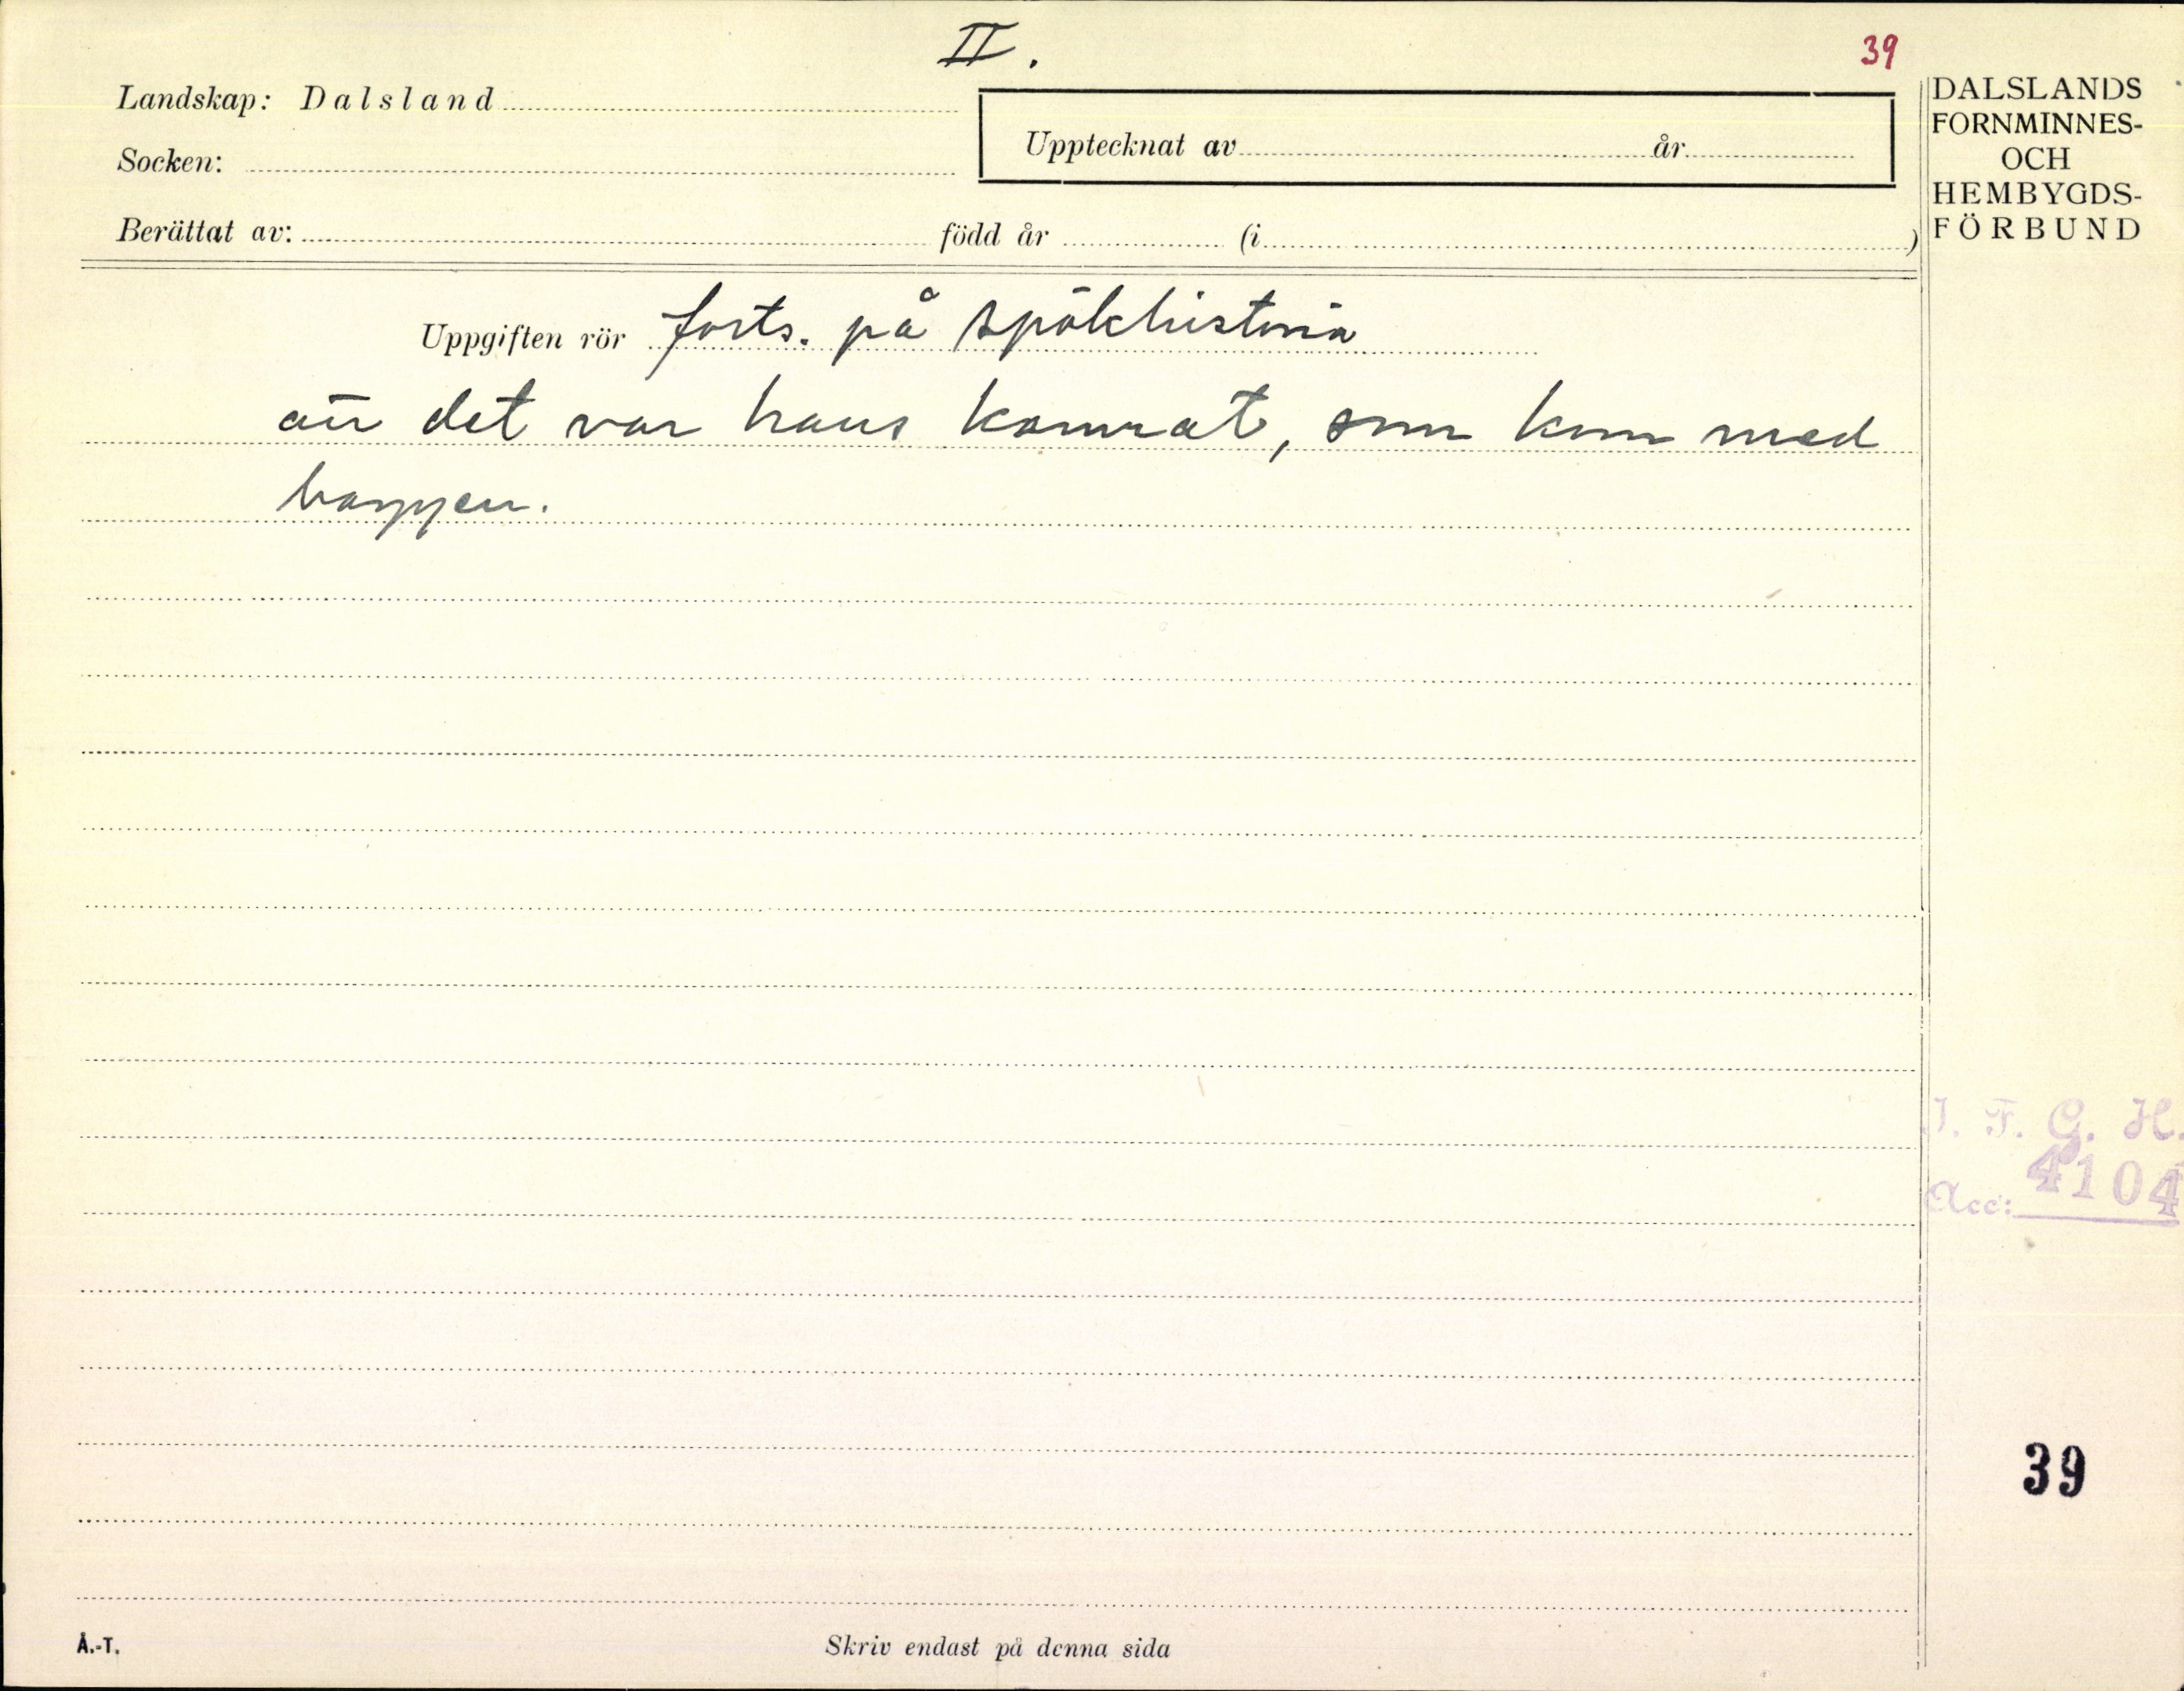 II.
39
Landskap: Dalsland
Socken:
Upptecknat av år
Berättat av: född år (i )
DALSLANDS
FORNMINNES-
OCH
HEMBYGDS-
FÖRBUND
Uppgiften rör forts. på spökhistoria
att det var hans kamrat, som kom med
I. F. G. H.
Acc: 4104
39
Å.-T.
Skriv endast på denna sida